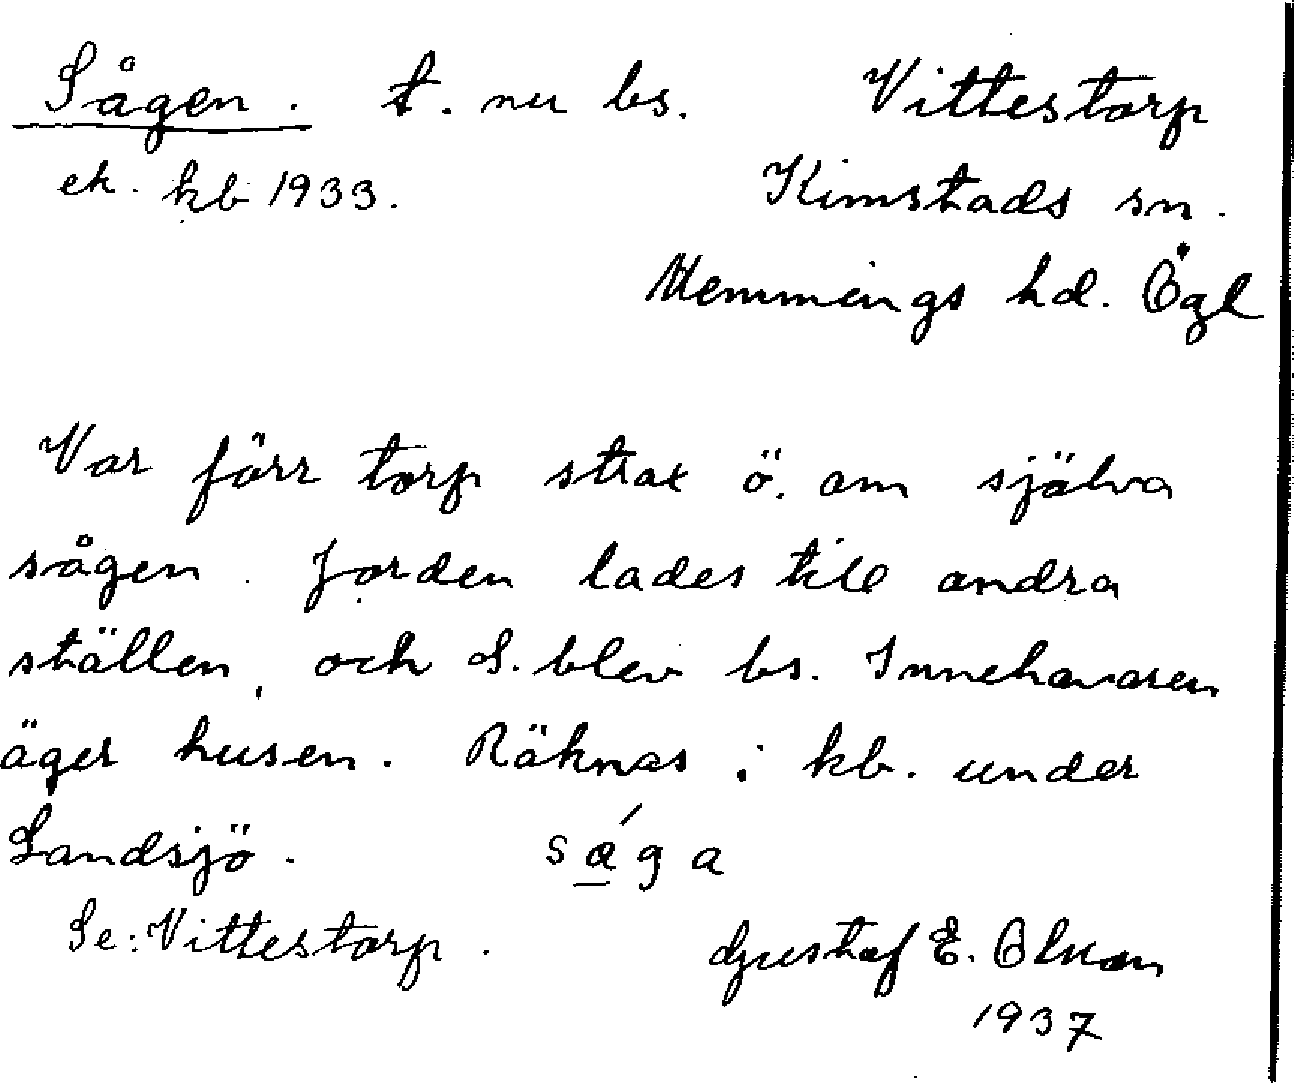 Sågen. t. nu bs. Vittestorp
ek. kb 1933. Kimstads sn.
Memmings hd. Ögl
Var förr torp strax ö. om själva
sågen. Jorden lades till andra
ställen, och S. blev bs. Innehavaren
äger husen. Räknas i kb. under
Landsjö. sága
Se: Vittestorp. Gustaf E. Olsson
1937